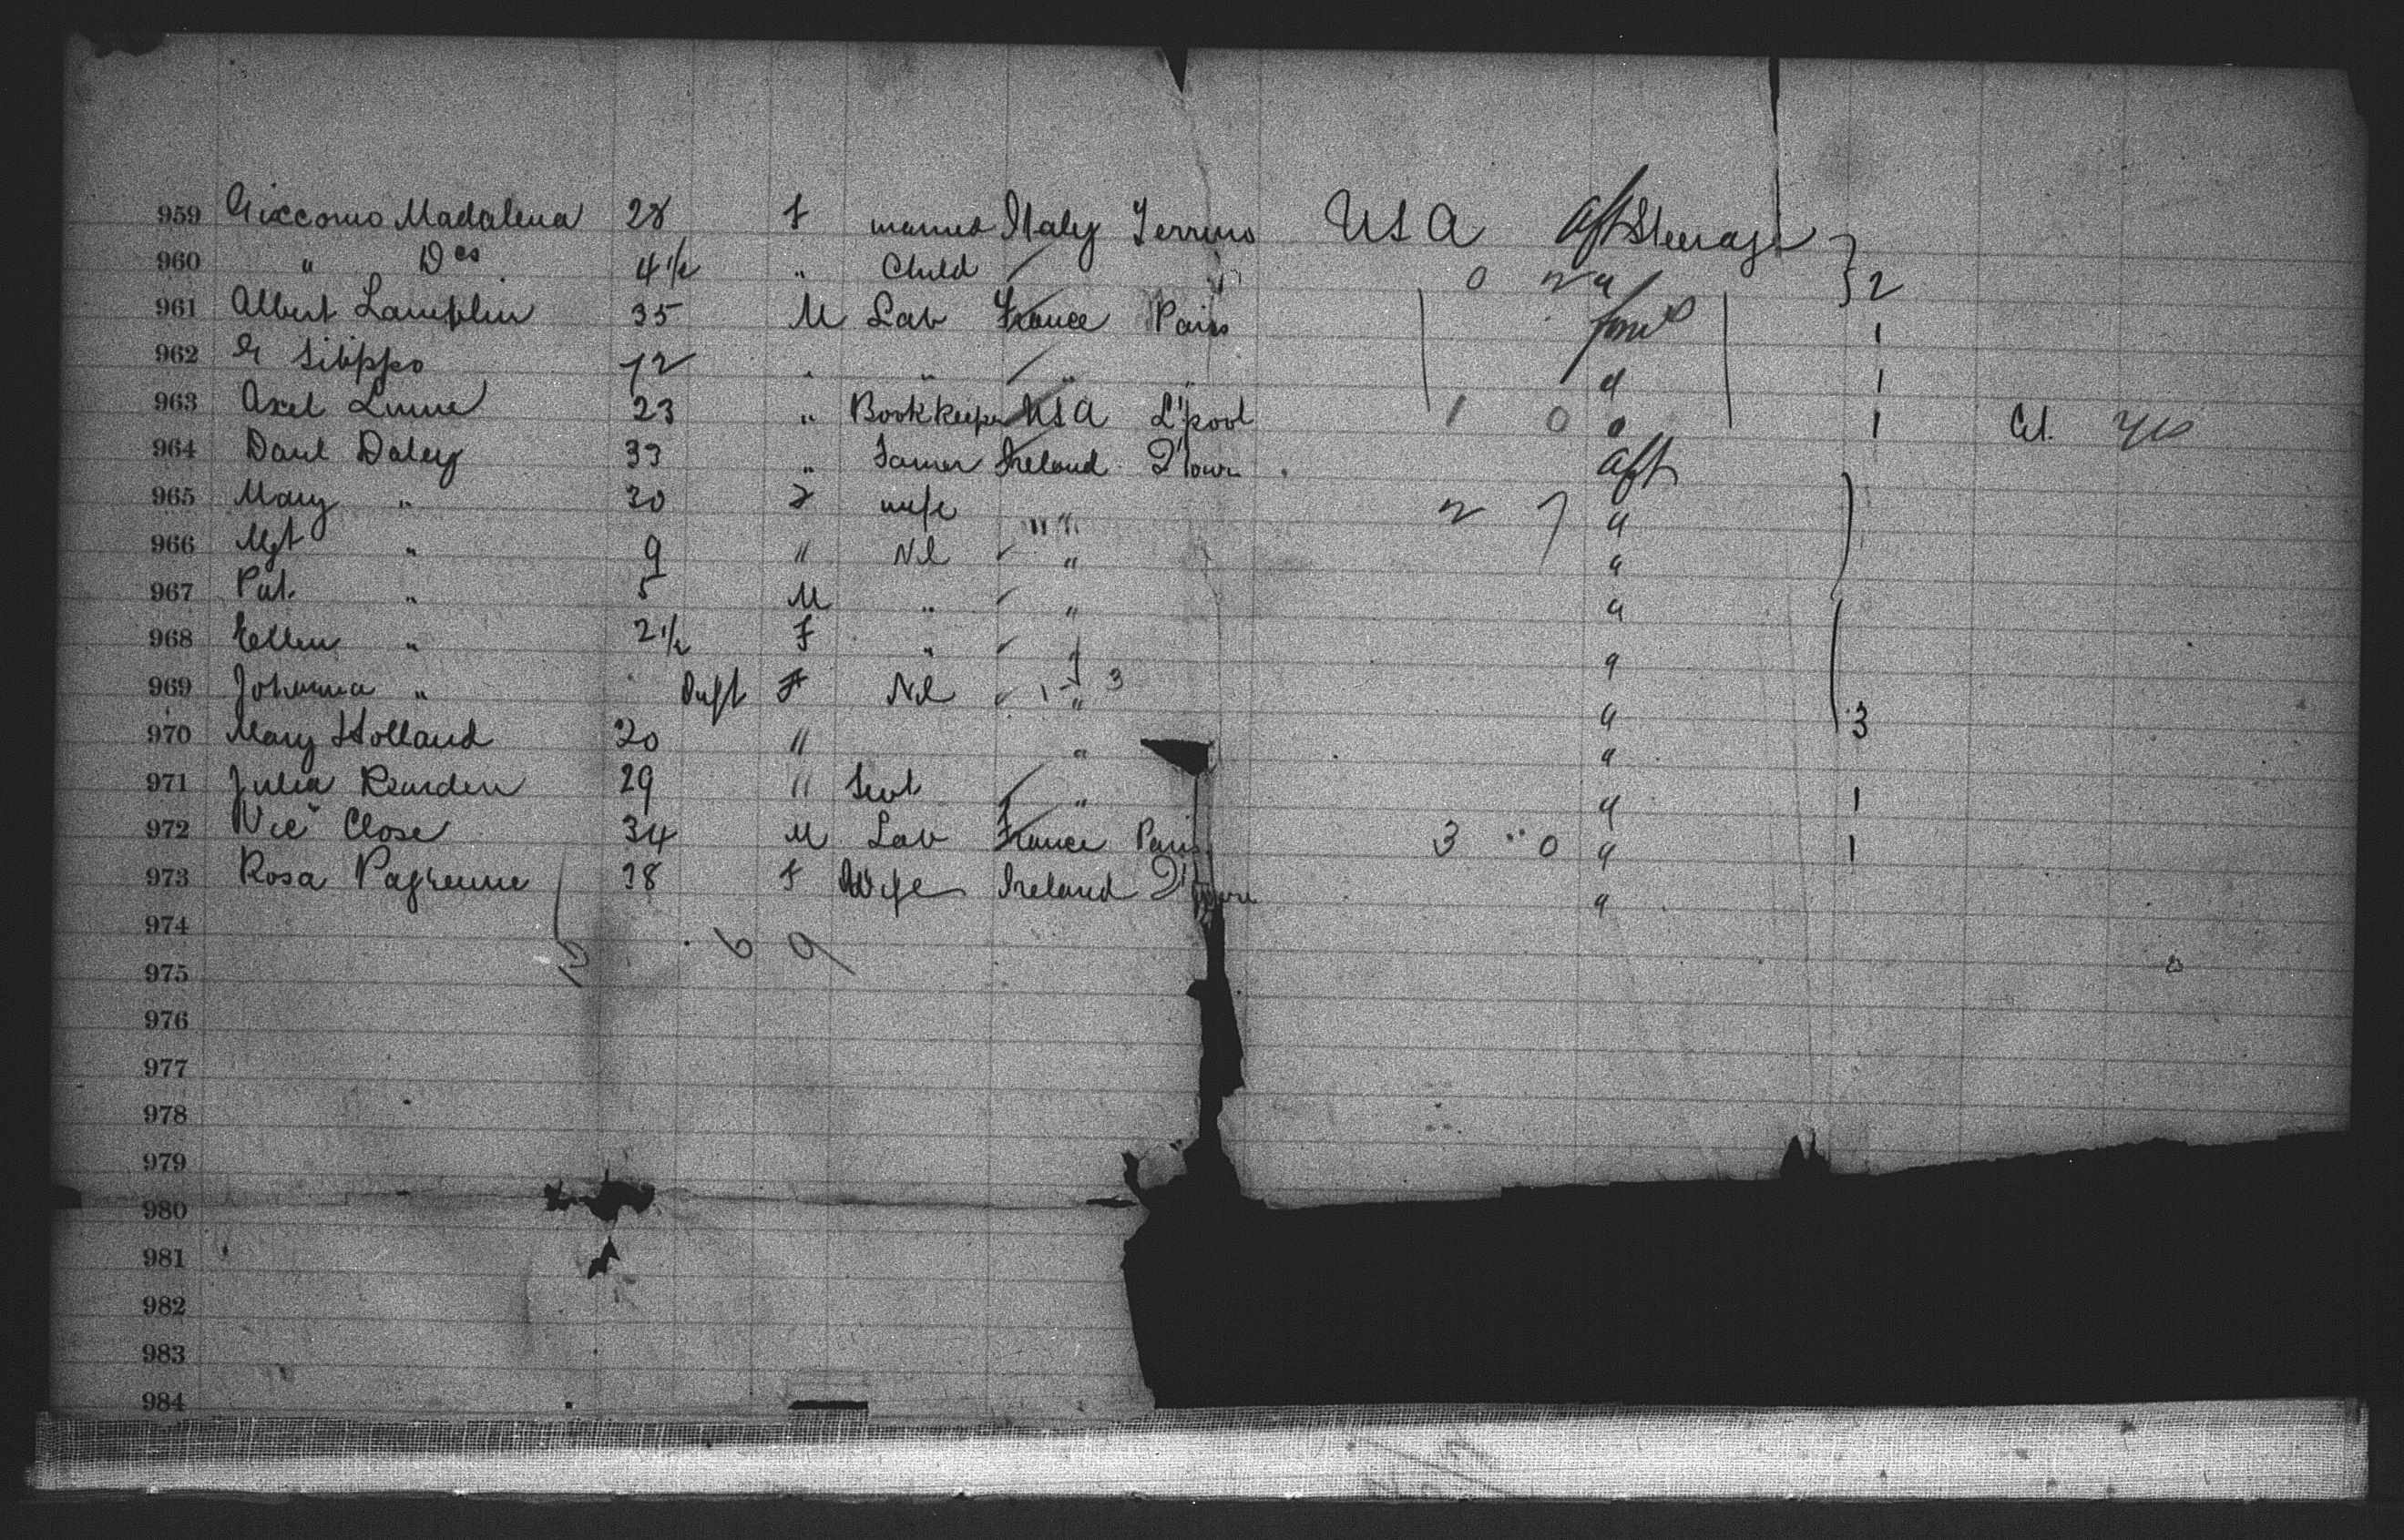 959 Giaccomo Madalena 28 f married Italy USA Aft Steerage
960 " Des 4 1/2 " Child 0 2 " } 2
961 Albert Lamplin 35 M Lab France Paris forwd 1
962 G Filippo 12 " " " " " 1
963 Axel Linne 23 " Bookkeeper USA L'pool 1 0 " 1 Cit. Yes
964 Danl Daley 33 " Farmer Ireland Q'town aft
965 Mary " 30 F wife " " 2 7 "
966 Mgt " 9 " Nil " "
967 Pat " 5 M " " "
968 Ellen " 2 1/2 F " "
969 Johanna " Inft F Nil 1 3 " " 3
970 Mary Holland 20 " " "
971 Julia Rearden 29 " Servt " " 1
972 Vic Close 34 M Lab France Paris 3 " 0 " 1
973 Rosa 38 F Wife Ireland Q'town "
974 15 6 9
975
976
977
978
979
980
981
982
983
984